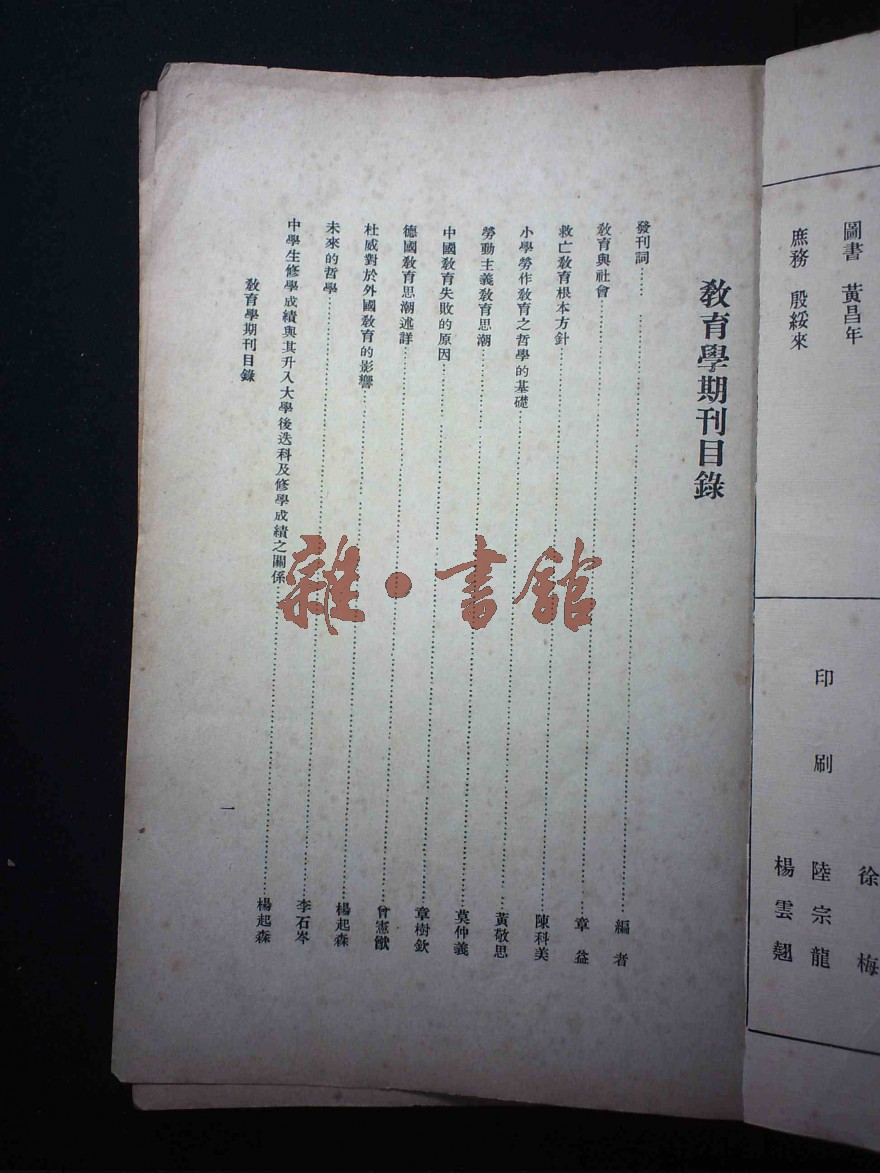 圖書 黃昌年
庶務 殷綏來
徐梅
印刷 陸宗龍
楊雲翹
教育學期刊目錄
發刊詞……編者
教育與社會……章益
救亡教育根本方針……陳科美
小學勞作教育之哲學的基礎……黃敬思
勞動主義教育思潮……莫仲義
中國教育失敗的原因……章樹欽
德國教育思潮述詳……曾憲猷
杜威對於外國教育的影響……楊起森
未來的哲學……李石岑
中學生修學成績與其升入大學後迭科及修學成績之關係……楊起森
教育學期刊目錄
一
雜·書館